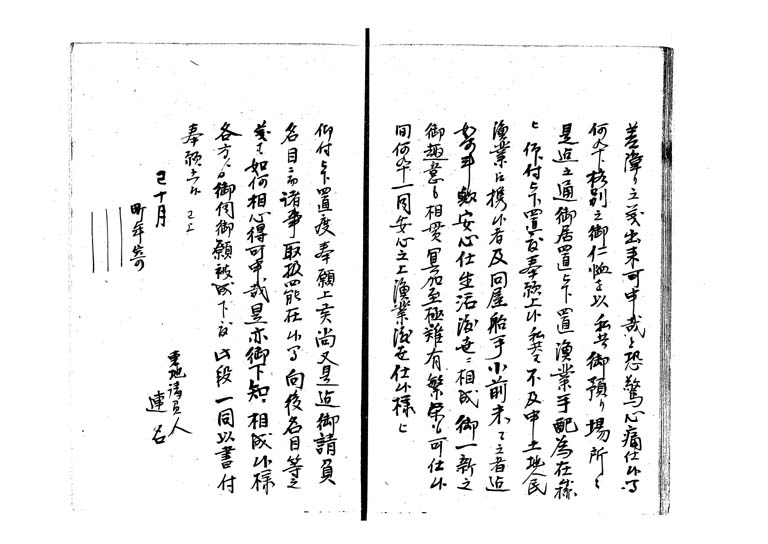 差障り之義出来可申哉と恐驚心痛仕候間
何卒格別之御仁恤を以私共御預り場所々
是迄之通御居置被下置漁業手配為在稼
と被仰付被下置度奉願上候私共ハ不及申土地人民
漁業ニ携候者及問屋船手小前末々之者迄
安心仕生活渡世ニ相成御一新之
御趣意も相貫冥加至極難有繁栄も可仕候
間何卒一同安心之上漁業渡世仕候様ニ
仰付被下置度奉願上候尚又是迄御請負
名目ニ而諸事取扱罷在候間向後名目等之
義ハ如何相心得可申哉是亦御下知ニ相成候様
各方ゟ御伺御願被成下度此段一同以書付
奉願上候 已上
巳十月
町年寄
東地請負人
連名